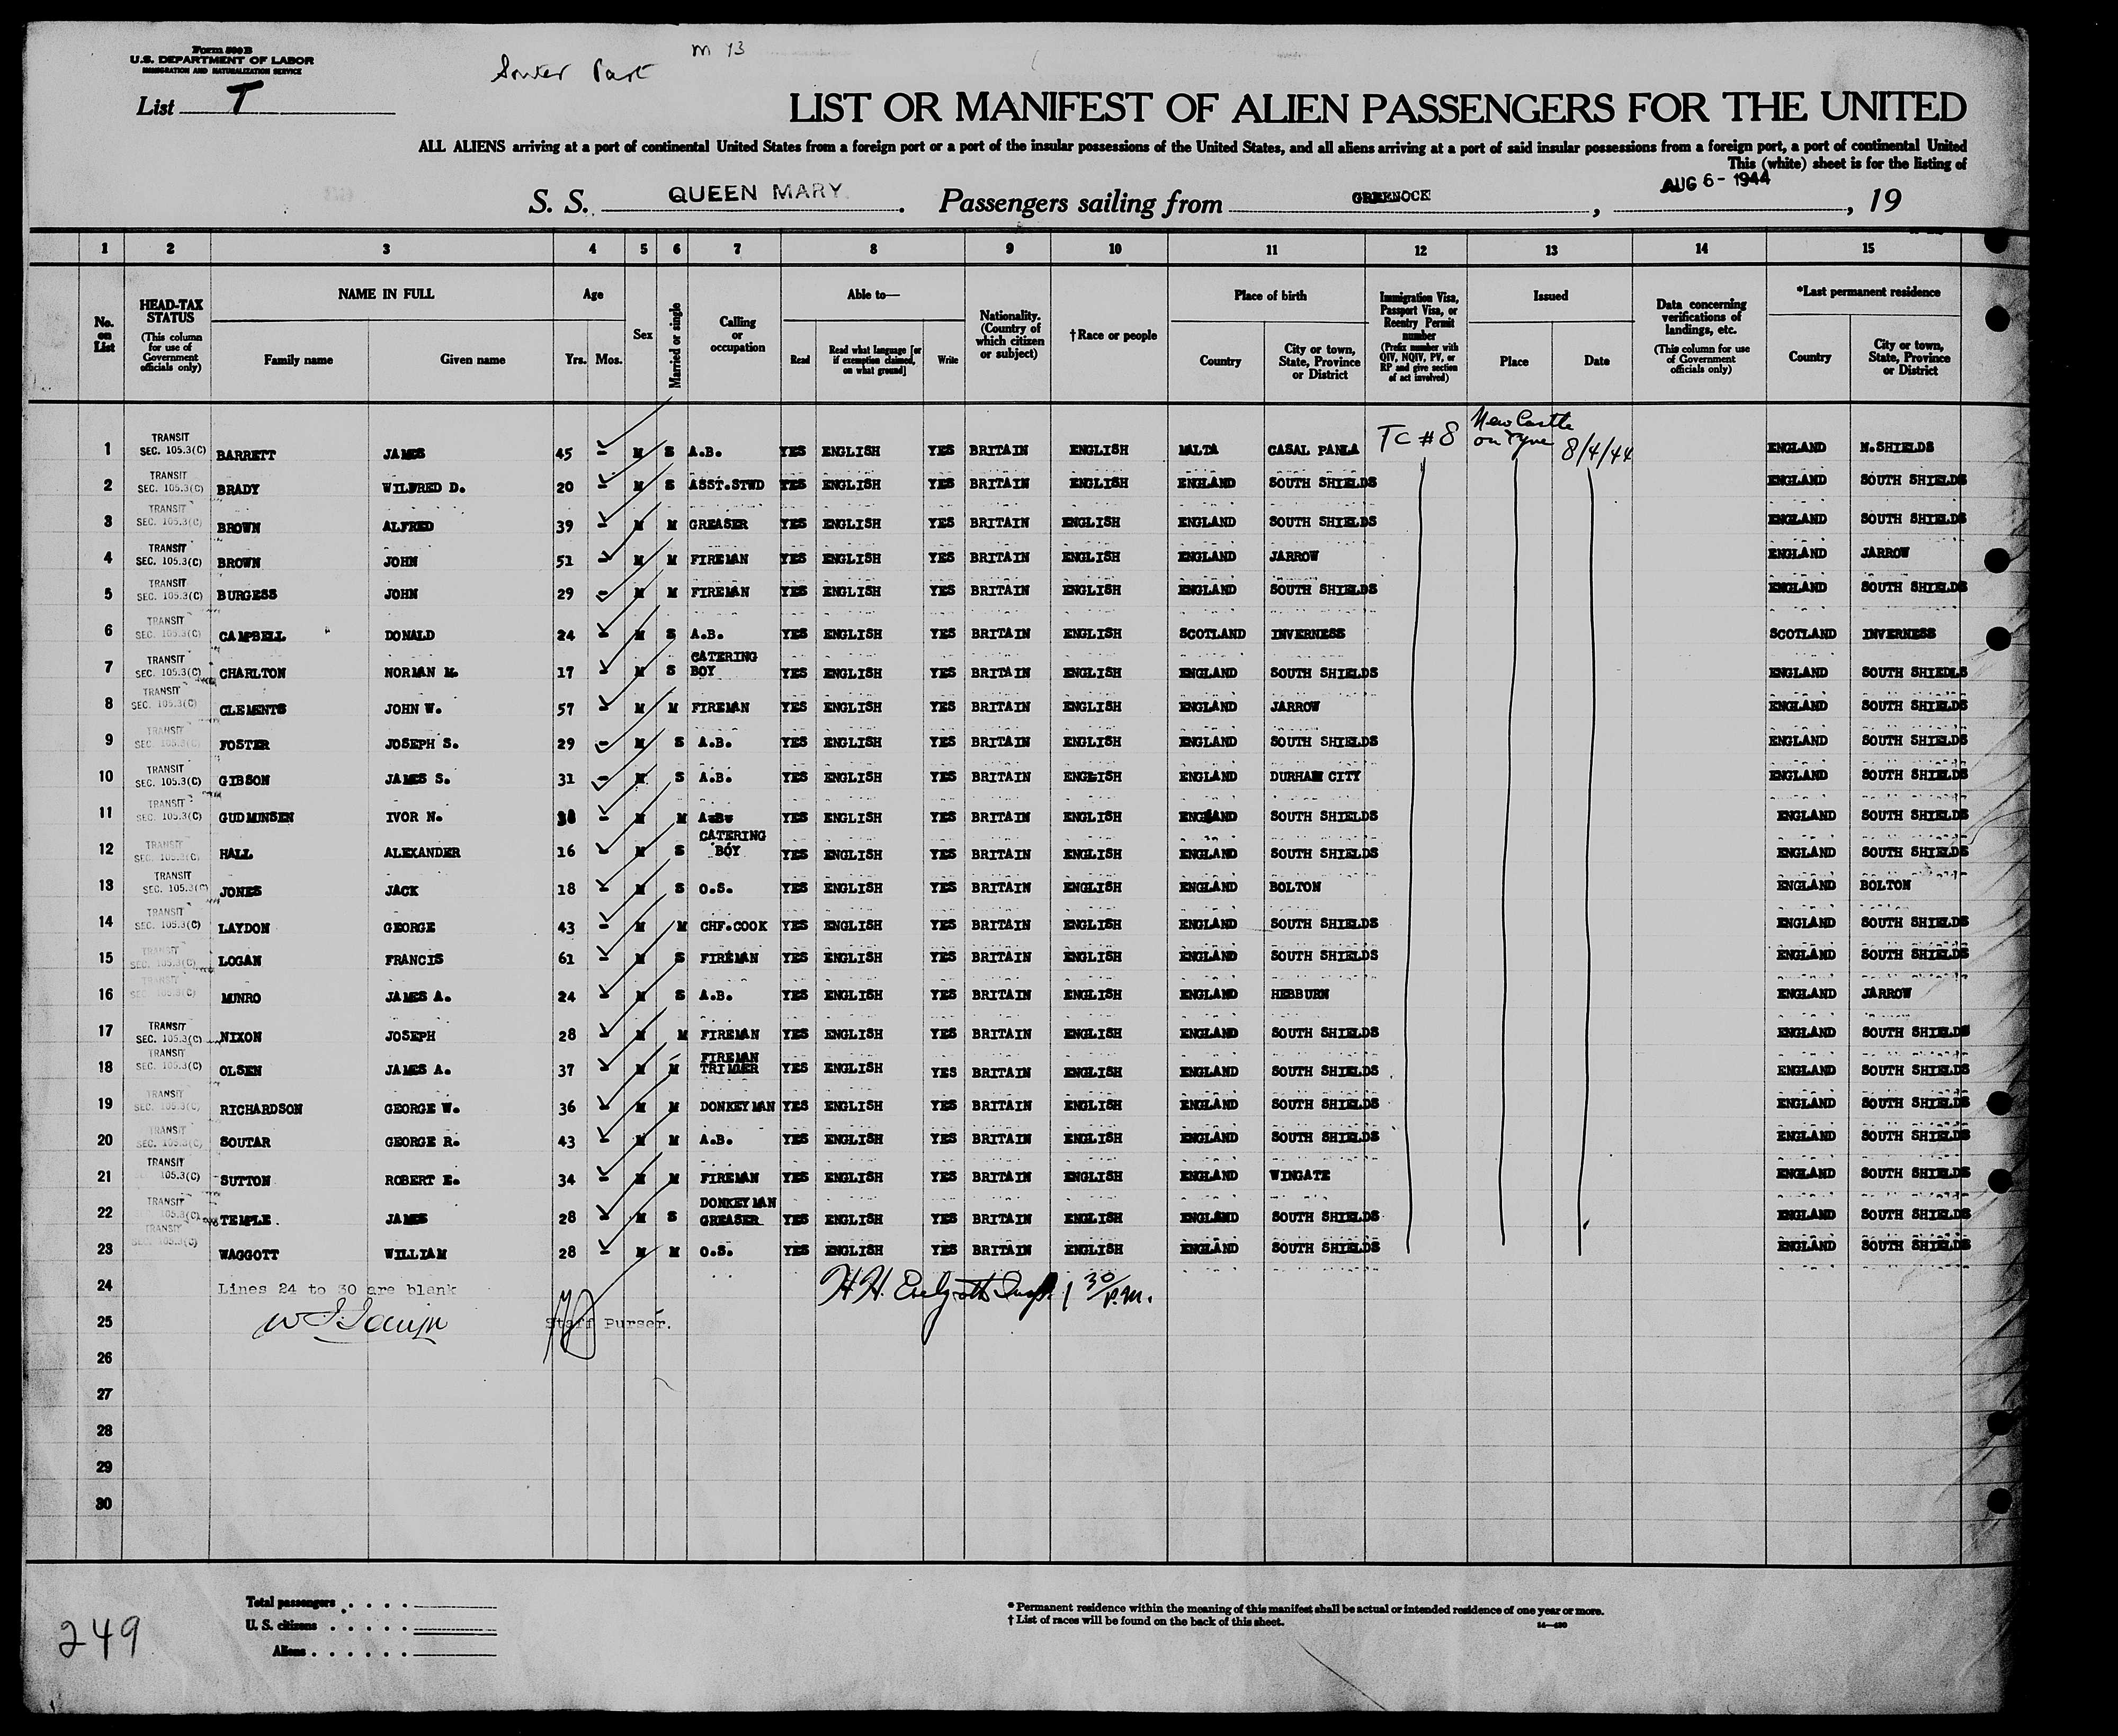 Form 500 B
U.S. DEPARTMENT OF LABOR
IMMIGRATION AND NATURALIZATION SERVICE
M 13
List T
LIST OR MANIFEST OF ALIEN PASSENGERS FOR THE UNITED
ALL ALIENS arriving at a port of continental United States from a foreign port or a port of the insular possessions of the United States, and all aliens arriving at a port of said insular possessions from a foreign port, a port of continental United
This (white) sheet is for the listing of
S. S. QUEEN MARY. Passengers sailing from GREENOCK, AUG 6 - 1944, 19
1 2 3 4 5 6 7 8 9 10 11 12 13 14 15
No. on List
HEAD-TAX STATUS (This column for use of Government officials only)
NAME IN FULL Family name Given name
Age Yrs. Mos.
Sex
Married or single
Calling or occupation
Able to— Read Read what language [or if exemption claimed, on what ground] Write
Nationality. (Country of which citizen or subject)
†Race or people
Place of birth Country City or town, State, Province or District
Immigration Visa, Passport Visa, or Reentry Permit number (Prefix number with QIV, NQIV, PV, or RP and give section of act involved)
Issued Place Date
Data concerning verifications of landings, etc. (This column for use of Government officials only)
*Last permanent residence Country City or town, State, Province or District
1 TRANSIT SEC. 105.3(C) BARRETT JAMES 45 - M S A.B. YES ENGLISH YES BRITAIN ENGLISH MALTA CASAL PANLA TC #8 New Castle on Tyne 8/4/44 ENGLAND N.SHIELDS
2 TRANSIT SEC. 105.3(C) BRADY WILFRED D. 20 - M S ASST.STWD YES ENGLISH YES BRITAIN ENGLISH ENGLAND SOUTH SHIELDS ENGLAND SOUTH SHIELDS
3 TRANSIT SEC. 105.3(C) BROWN ALFRED 39 - M M GREASER YES ENGLISH YES BRITAIN ENGLISH ENGLAND SOUTH SHIELDS ENGLAND SOUTH SHIELDS
4 TRANSIT SEC. 105.3(C) BROWN JOHN 51 - M M FIREMAN YES ENGLISH YES BRITAIN ENGLISH ENGLAND JARROW ENGLAND JARROW
5 TRANSIT SEC. 105.3(C) BURGESS JOHN 29 - M M FIREMAN YES ENGLISH YES BRITAIN ENGLISH ENGLAND SOUTH SHIELDS ENGLAND SOUTH SHIELDS
6 TRANSIT SEC. 105.3(C) CAMPBELL DONALD 24 - M S A.B. YES ENGLISH YES BRITAIN ENGLISH SCOTLAND INVERNESS SCOTLAND INVERNESS
7 TRANSIT SEC. 105.3(C) CHARLTON NORMAN M. 17 - M S CATERING BOY YES ENGLISH YES BRITAIN ENGLISH ENGLAND SOUTH SHIELDS ENGLAND SOUTH SHIEDLS
8 TRANSIT SEC. 105.3(C) CLEMENTS JOHN W. 57 - M M FIREMAN YES ENGLISH YES BRITAIN ENGLISH ENGLAND JARROW ENGLAND SOUTH SHIELDS
9 TRANSIT SEC. 105.3(C) FOSTER JOSEPH S. 29 - M S A.B. YES ENGLISH YES BRITAIN ENGLISH ENGLAND SOUTH SHIELDS ENGLAND SOUTH SHIELDS
10 TRANSIT SEC. 105.3(C) GIBSON JAMES S. 31 - M S A.B. YES ENGLISH YES BRITAIN ENGLISH ENGLAND DURHAM CITY ENGLAND SOUTH SHIELDS
11 TRANSIT SEC. 105.3(C) GUDMUNSEN IVOR N. 38 - M M A.B. YES ENGLISH YES BRITAIN ENGLISH ENGLAND SOUTH SHIELDS ENGLAND SOUTH SHIELDS
12 TRANSIT SEC. 105.3(C) HALL ALEXANDER 16 - M S CATERING BOY YES ENGLISH YES BRITAIN ENGLISH ENGLAND SOUTH SHIELDS ENGLAND SOUTH SHIELDS
13 TRANSIT SEC. 105.3(C) JONES JACK 18 - M S O.S. YES ENGLISH YES BRITAIN ENGLISH ENGLAND BOLTON ENGLAND BOLTON
14 TRANSIT SEC. 105.3(C) LAYDON GEORGE 43 - M M CHF.COOK YES ENGLISH YES BRITAIN ENGLISH ENGLAND SOUTH SHIELDS ENGLAND SOUTH SHIELDS
15 TRANSIT SEC. 105.3(C) LOGAN FRANCIS 61 - M S FIREMAN YES ENGLISH YES BRITAIN ENGLISH ENGLAND SOUTH SHIELDS ENGLAND SOUTH SHIELDS
16 TRANSIT SEC. 105.3(C) MUNRO JAMES A. 24 - M S A.B. YES ENGLISH YES BRITAIN ENGLISH ENGLAND HEBBURN ENGLAND JARROW
17 TRANSIT SEC. 105.3(C) NIXON JOSEPH 28 - M M FIREMAN YES ENGLISH YES BRITAIN ENGLISH ENGLAND SOUTH SHIELDS ENGLAND SOUTH SHIELDS
18 TRANSIT SEC. 105.3(C) OLSEN JAMES A. 37 - M M FIREMAN TRIMMER YES ENGLISH YES BRITAIN ENGLISH ENGLAND SOUTH SHIELDS ENGLAND SOUTH SHIELDS
19 TRANSIT SEC. 105.3(C) RICHARDSON GEORGE W. 36 - M M DONKEYMAN YES ENGLISH YES BRITAIN ENGLISH ENGLAND SOUTH SHIELDS ENGLAND SOUTH SHIELDS
20 TRANSIT SEC. 105.3(C) SOUTAR GEORGE R. 43 - M M A.B. YES ENGLISH YES BRITAIN ENGLISH ENGLAND SOUTH SHIELDS ENGLAND SOUTH SHIELDS
21 TRANSIT 105.3(C) SUTTON ROBERT E. 34 - M M FIREMAN YES ENGLISH YES BRITAIN ENGLISH ENGLAND WINGATE ENGLAND SOUTH SHIELDS
22 TRANSIT 105.3(C) TEMPLE JAMES 28 - M S DONKEYMAN GREASER YES ENGLISH YES BRITAIN ENGLISH ENGLAND SOUTH SHIELDS ENGLAND SOUTH SHIELDS
23 TRANSIT SEC. 105.3(C) WAGGOTT WILLIAM 28 - M M O.S. YES ENGLISH YES BRITAIN ENGLISH ENGLAND SOUTH SHIELDS ENGLAND SOUTH SHIELDS
24 Lines 24 to 30 are blank H.H. 1 30/P.M.
25 Staff Purser.
26
27
28
29
30
Total passengers
U. S. citizens
Aliens
* Permanent residence within the meaning of this manifest shall be actual or intended residence of one year or more.
† List of races will be found on the back of this sheet.
249